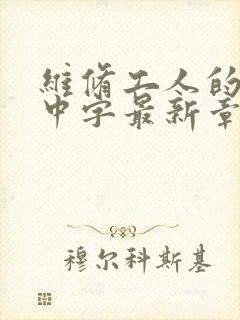 维脩工人的
中字最新章
穆尔科斯基